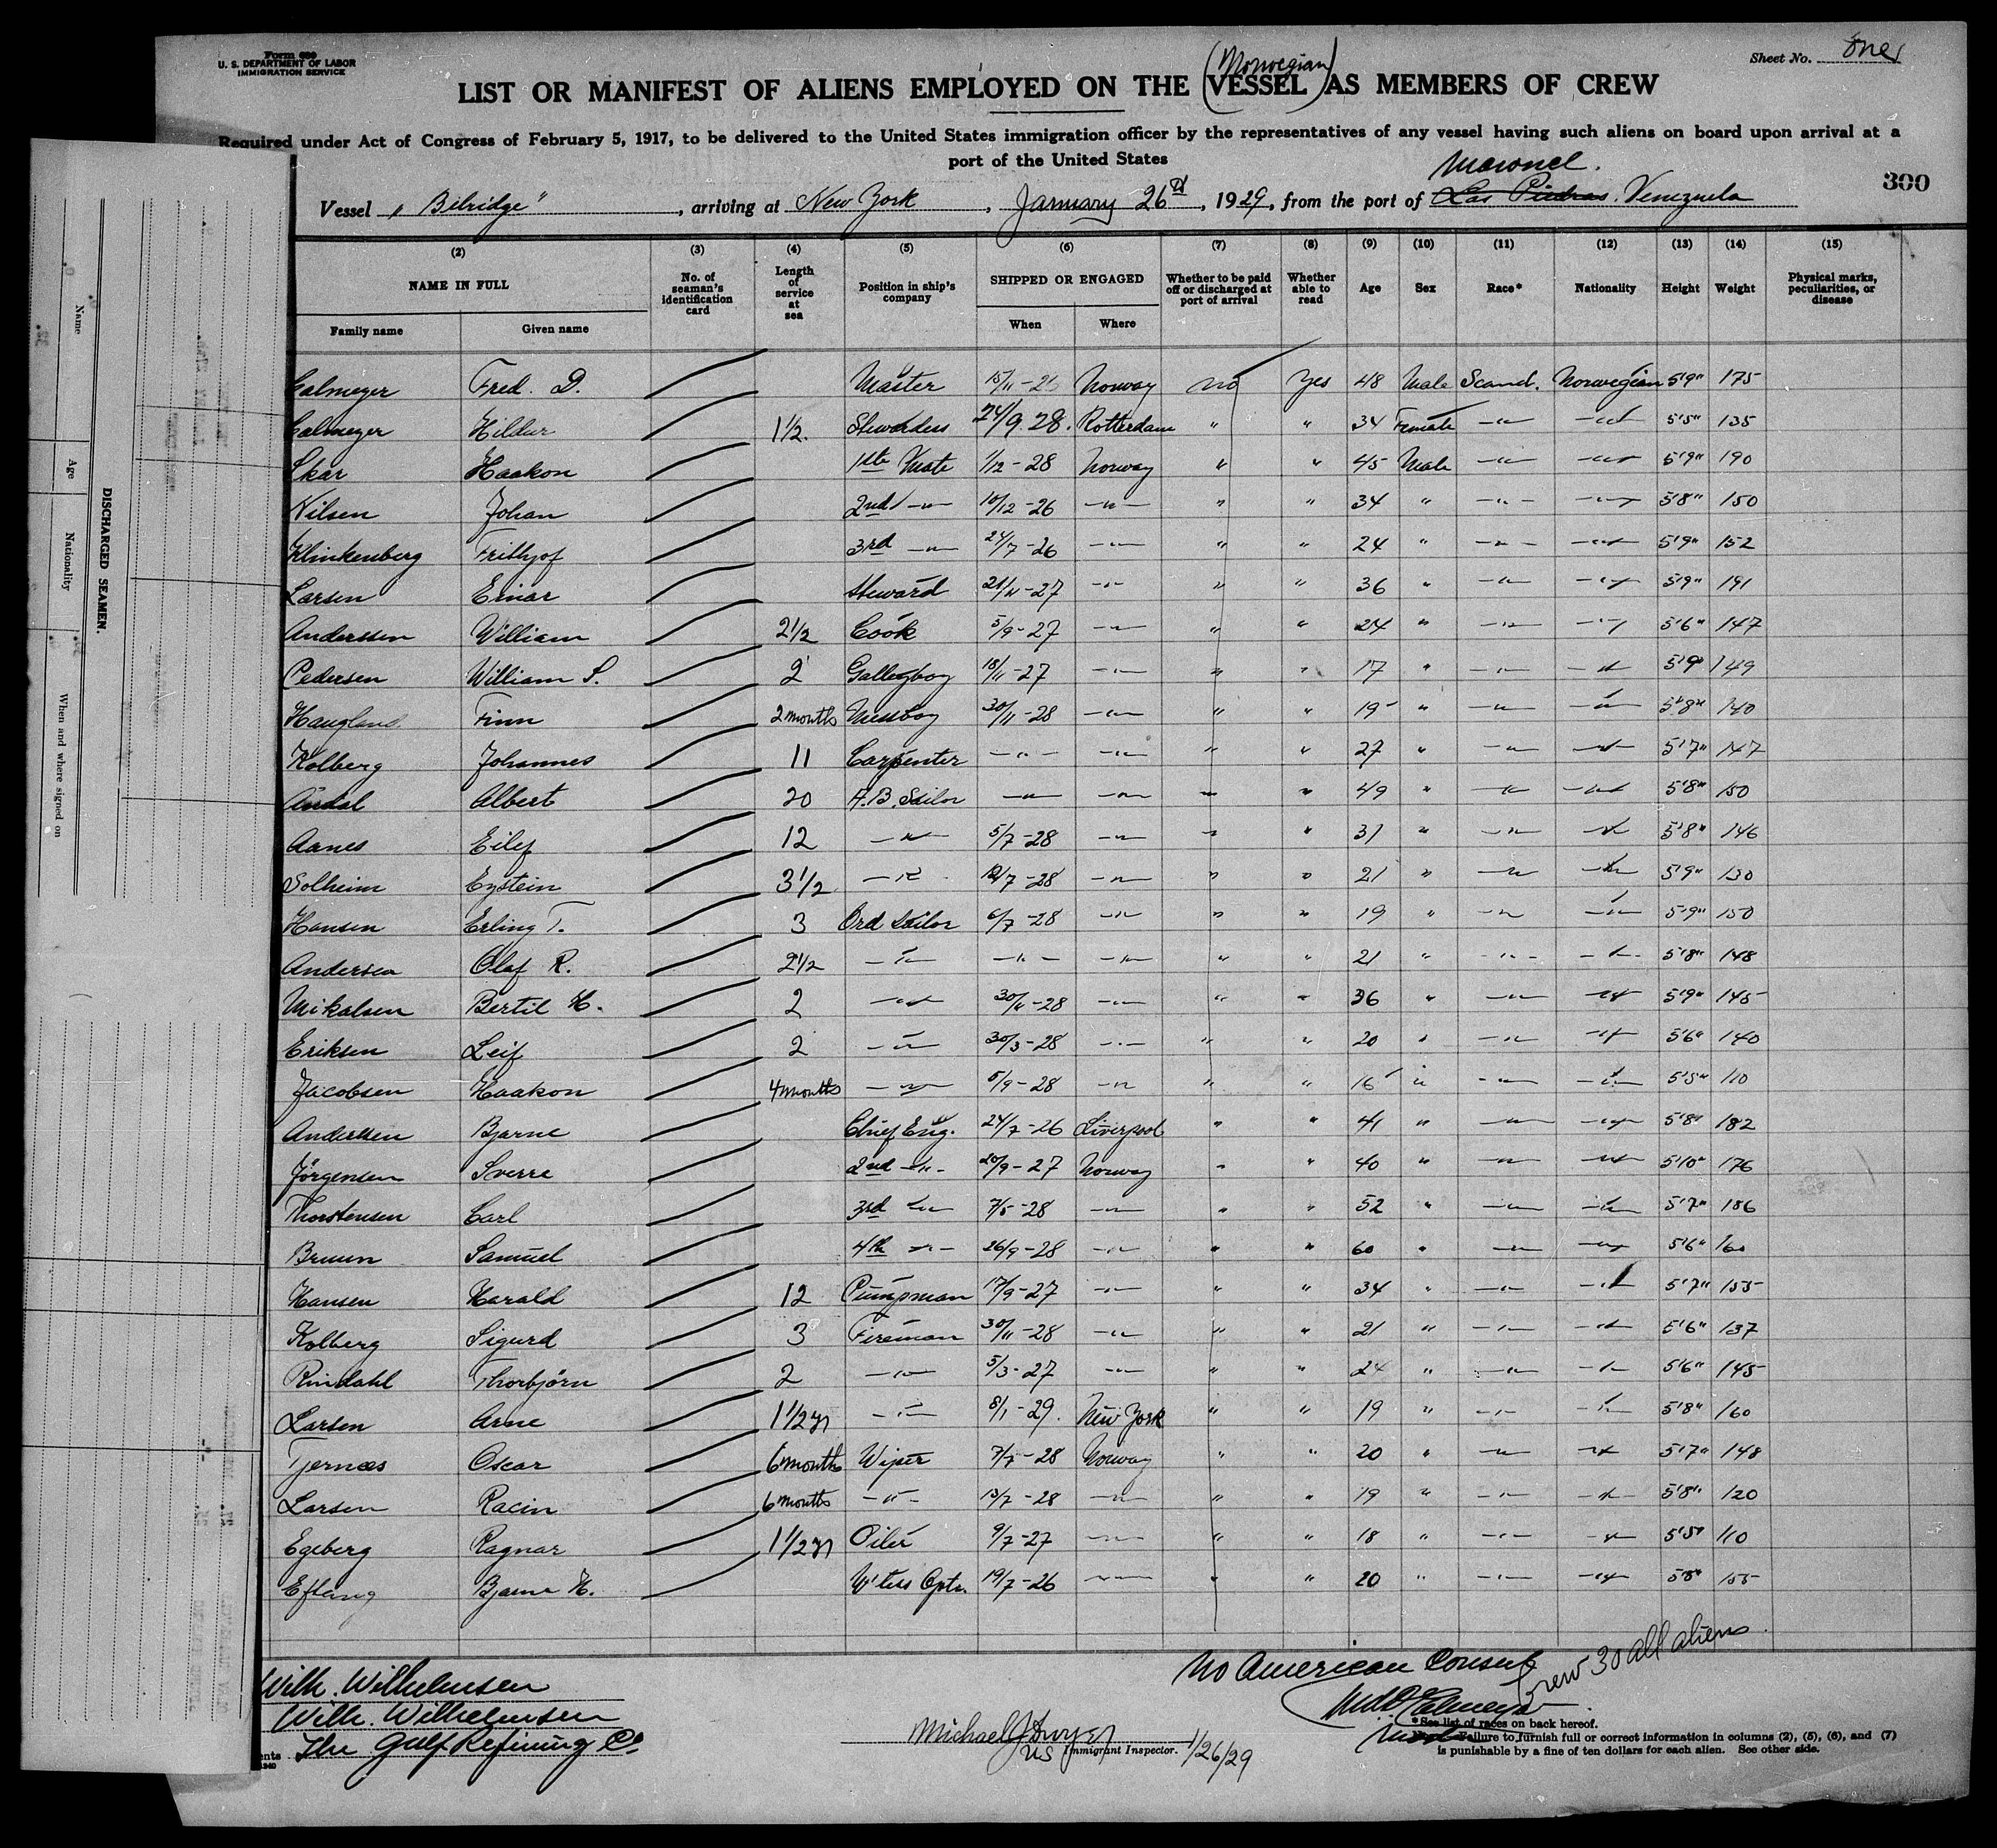 Form 680
U. S. DEPARTMENT OF LABOR
IMMIGRATION SERVICE
Sheet No. One
(Norwegian)
LIST OR MANIFEST OF ALIENS EMPLOYED ON THE VESSEL AS MEMBERS OF CREW
Required under Act of Congress of February 5, 1917, to be delivered to the United States immigration officer by the representatives of any vessel having such aliens on board upon arrival at a
port of the United States
300
Vessel "Belridge", arriving at New York, January 26th, 1929, from the port of Las Piedras. Venezuela
(2) (3) (4) (5) (6) (7) (8) (9) (10) (11) (12) (13) (14) (15)
NAME IN FULL No. of seaman's identification card Length of service at sea Position in ship's company SHIPPED OR ENGAGED Whether to be paid off or discharged at port of arrival Whether able to read Age Sex Race* Nationality Height Weight Physical marks, peculiarities, or disease
Family name Given name When Where
Calmeyer Fred. D. Master Norway no Yes 48 Male Scand. Norwegian 5'9" 175
Calmeyer Hildur 1 1/2 Stewardess 24/9 28. Rotterdam " " 34 Female -"- -"- 5'5" 135
Skar Haakon 1ste Mate 1/12-28 Norway " " 45 Male -"- -"- 5'9" 190
Nilsen Johan 2nd -"- 10/12-26 -"- " " 34 " -"- -"- 5'8" 150
Klinkenberg Frithjof 3rd -"- 24/7-26 -"- " " 24 " -"- -"- 5'9" 152
Larsen Einar Steward 21/11-27 -"- " " 36 " -"- -"- 5'9" 191
Anderssen William 2 1/2 Cook 5/9-27 -"- " " 24 " -"- -"- 5'6" 147
Pedersen William S. 2 Galleyboy 18/11-27 -"- " " 17 " -"- -"- 5'9" 149
Haugland Finn 2 months Messboy 30/11-28 -"- " " 19 " -"- -"- 5'8" 140
Kolberg Johannes 11 Carpenter -"- -"- " " 27 " -"- -"- 5'7" 147
Albert 20 A.B. Sailor -"- -"- " " 49 " -"- -"- 5'8" 150
Aanes Eilef 12 -"- 5/7-28 -"- " " 37 " -"- -"- 5'8" 146
Solheim Eystein 3 1/2 -"- 12/7-28 -"- " " 21 " -"- -"- 5'9" 130
Hansen Erling T. 3 Ord Sailor 6/7-28 -"- " " 19 " -"- -"- 5'9" 150
Andersen Olaf R. 2 1/2 -"- -"- -"- " " 21 " -"- -"- 5'8" 148
Mikalsen Bertil H. 2 -"- 30/11-28 -"- " " 36 " -"- -"- 5'9" 145
Eriksen Leif 2 -"- 30/3-28 -"- " " 20 " -"- -"- 5'6" 140
Jacobsen Haakon 4 months -"- 5/9-28 -"- " " 16 " -"- -"- 5'5" 110
Anderssen Bjarne Chief Eng. 24/7-26 Liverpool " " 41 " -"- -"- 5'8" 182
Jörgensen Sverre 2nd -"- 20/9-27 Norway " " 40 " -"- -"- 5'10" 176
Thorstensen Carl 3rd -"- 7/5-28 -"- " " 52 " -"- -"- 5'7" 186
Bruun Samuel 4th -"- 26/9-28 -"- " " 60 " -"- -"- 5'6" 160
Hansen Harald 12 Pumpman 17/9-27 -"- " " 34 " -"- -"- 5'7" 155
Kolberg Sigurd 3 Fireman 30/11-28 -"- " " 21 " -"- -"- 5'6" 137
Rindahl Thorbjörn 2 -"- 5/3-27 -"- " " 24 " -"- -"- 5'6" 145
Larsen Arne 1 1/2 yr -"- 8/1-29. New York " " 19 " -"- -"- 5'8" 160
Tjernæs Oscar 6 months Wiper 7/7-28 Norway " " 20 " -"- -"- 5'7" 148
Larsen Racin 6 months -"- 13/7-28 -"- " " 19 " -"- -"- 5'8" 120
Egeberg Ragnar 1 1/2 yr Oiler 9/7-27 -"- " " 18 " -"- -"- 5'5" 110
Efteng Bjarne H. 19/7-26 -"- " " 20 " -"- -"- 5'8" 155
Crew 30 all aliens
No American Consul
Wilh. Wilhelmsen
Wilh. Wilhelmsen
The Gulf Refining Co
Michael J Dwyer
US Immigrant Inspector. 1/26/29
*See list of races on back hereof.
Failure to furnish full or correct information in columns (2), (5), (6), and (7)
is punishable by a fine of ten dollars for each alien. See other side.
DISCHARGED SEAMEN.
Name
Age
Nationality
When and where signed on